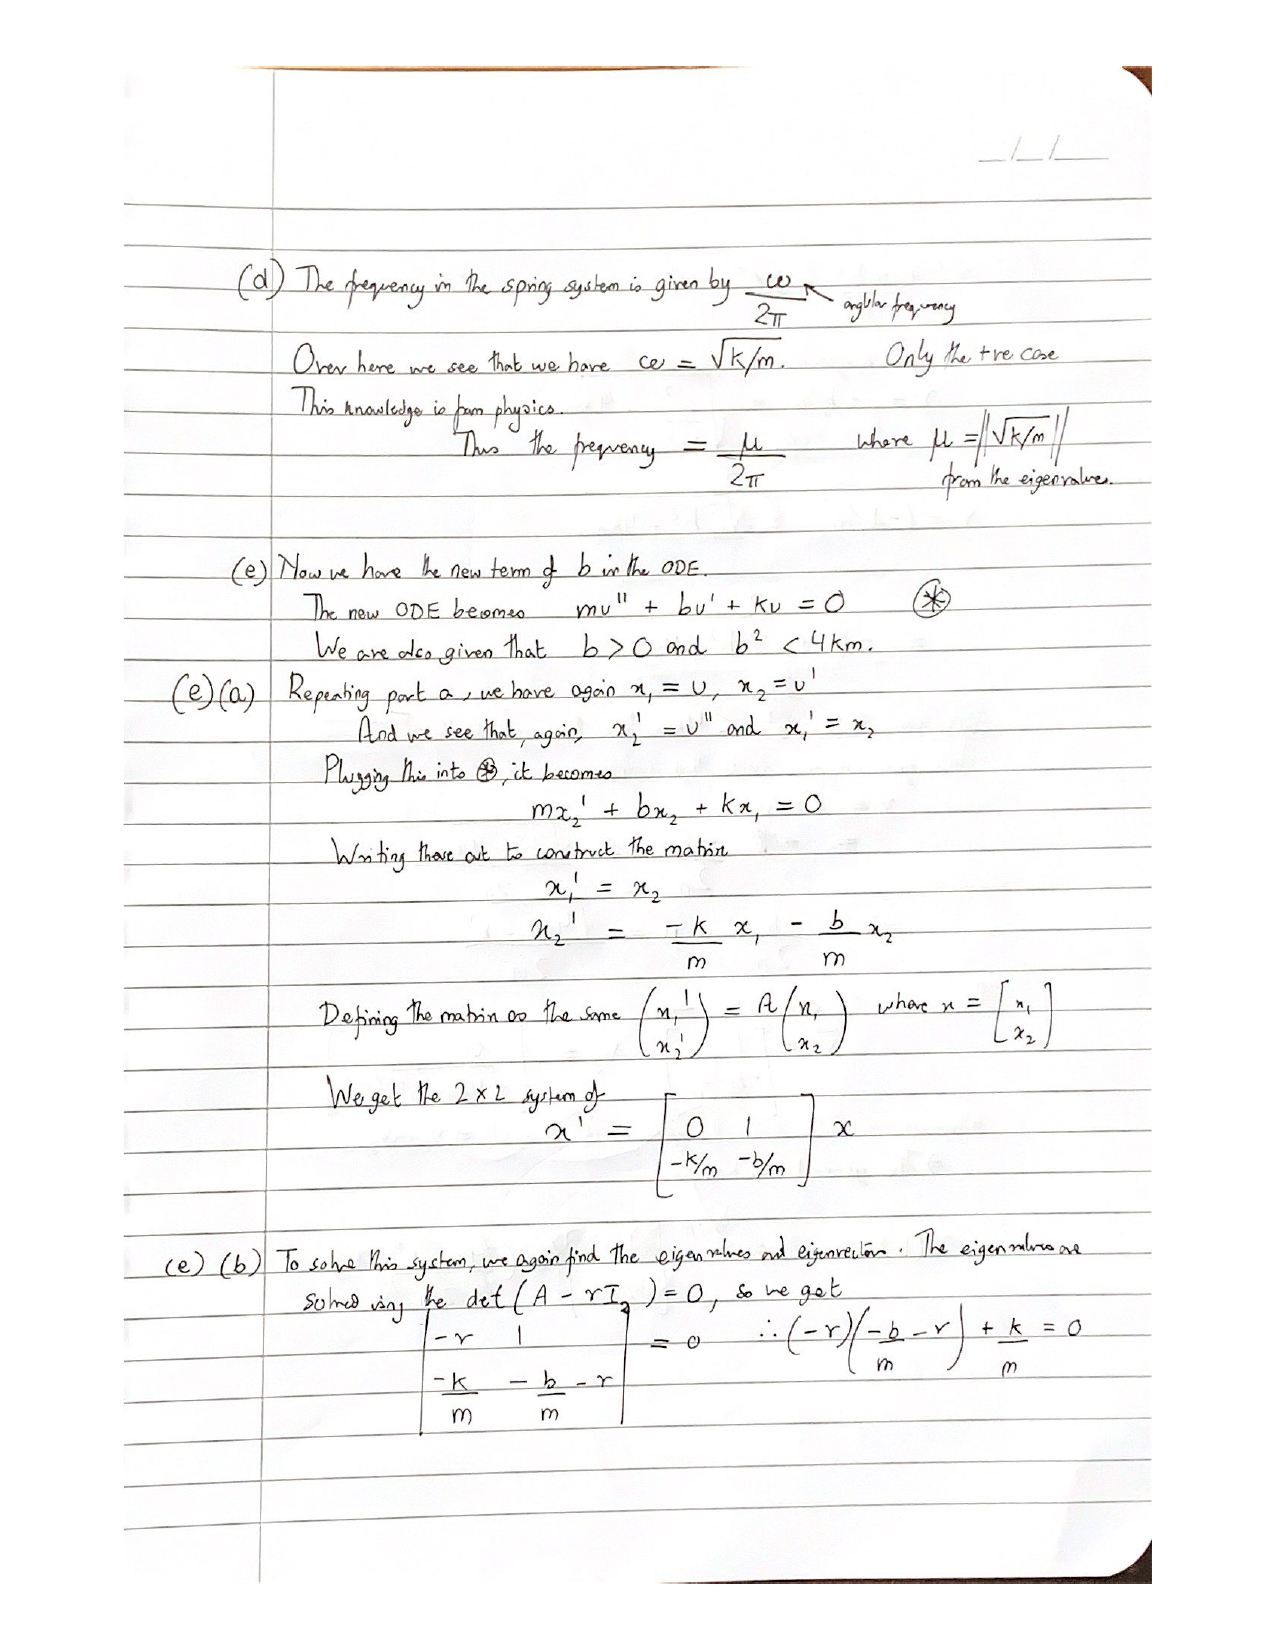 _/_/_
(d) The frequency in the spring system is given by ω/2π ← angular frequency
Over here we see that we have ω = √k/m. Only the +ve case
This knowledge is from physics.
Thus the frequency = μ/2π where μ = ||√k/m||
from the eigenvalues.
(e) Now we have the new term of b in the ODE.
The new ODE becomes mu'' + bu' + ku = 0 ⊛
We are also given that b > 0 and b² < 4km.
(e)(a) Repeating part a, we have again x₁ = u, x₂ = u'
And we see that, again, x₂' = u'' and x₁' = x₂
Plugging this into ⊛, it becomes
mx₂' + bx₂ + kx₁ = 0
Writing these out to construct the matrix
x₁' = x₂
x₂' = -k/m x₁ - b/m x₂
Defining the matrix as the same (x₁' x₂') = A (x₁ x₂) where x = [x₁ x₂]
We get the 2×2 system of
x' = [0 1 -k/m -b/m] x
(e) (b) To solve this system, we again find the eigenvalues and eigenvectors. The eigenvalues are
solved using the det (A - rI₂) = 0, so we get
|-r 1 -k/m -b/m - r| = 0 ∴ (-r)(-b/m - r) + k/m = 0